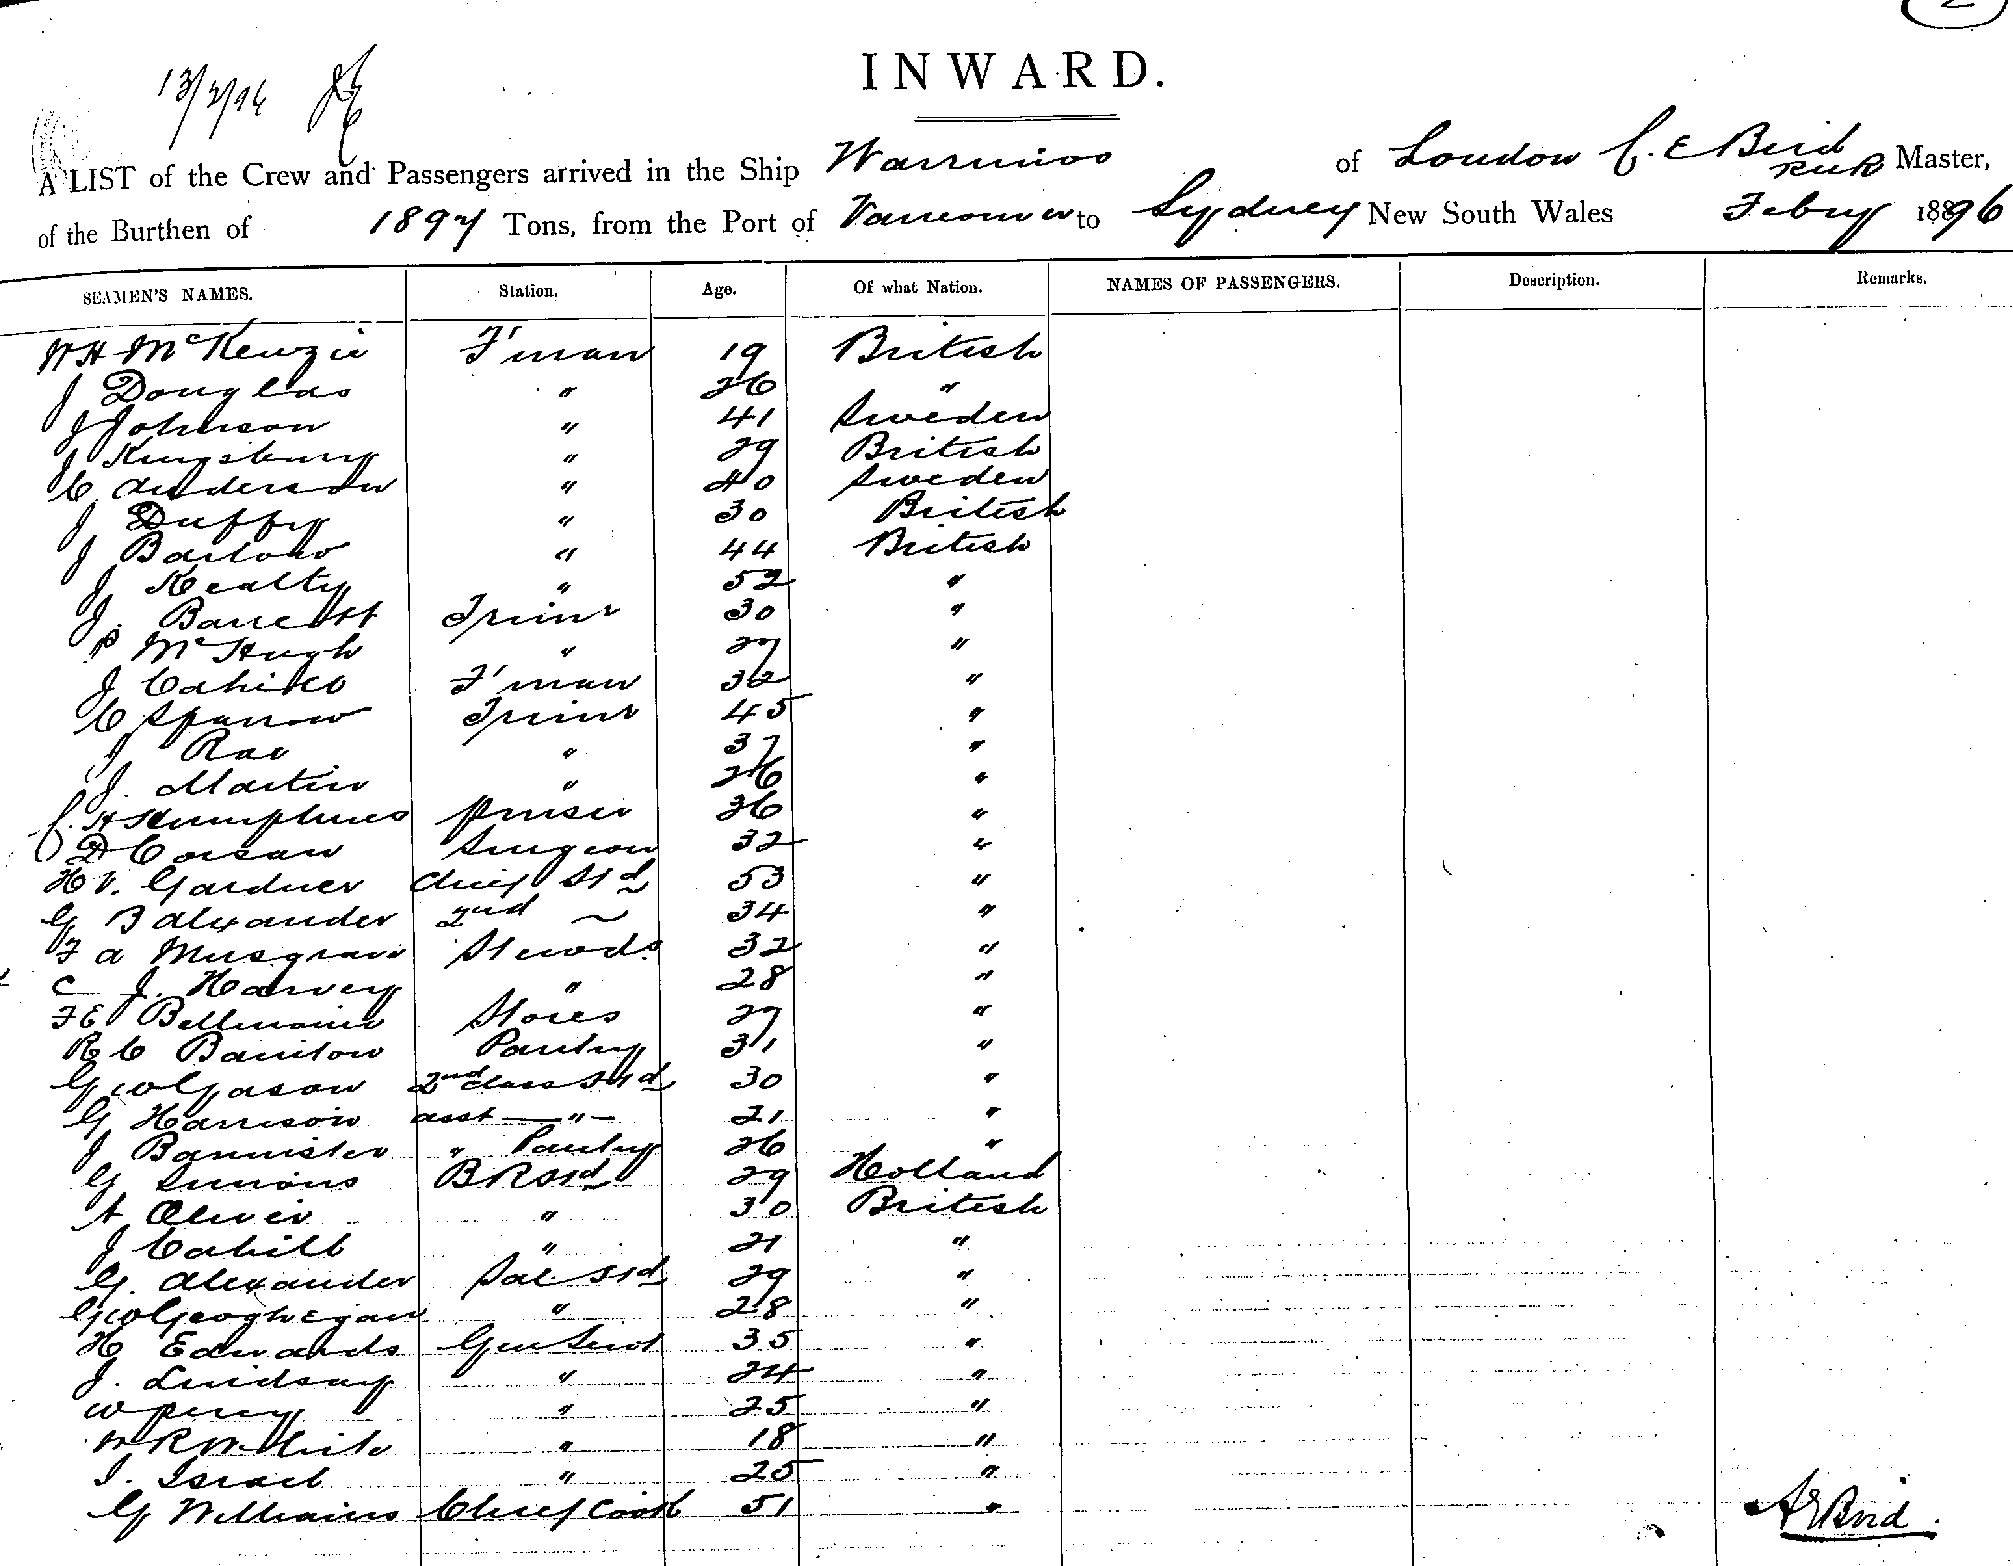 2
13/2/96
INWARD.
A LIST of the Crew and Passengers arrived in the Ship Warrimoo of London C. E Bird RNR Master,
of the Burthen of 1897 Tons, from the Port of Vancouver to Sydney New South Wales Febry 1896
SEAMEN'S NAMES. Station. Age. Of what Nation. NAMES OF PASSENGERS. Description. Remarks.
W H McKenzie F'man 19 British
J Douglas " 26 "
J Johnson " 41 Sweden
J Kingsbury " 29 British
C Anderson " 40 Sweden
J Duffy " 30 British
J Barlow " 44 British
J Kealty " 52 "
J. Barrett Trimr 30 "
P McHugh " 27 "
J Cahill F'man 32 "
C Sparrow Trimr 45 "
J Rae " 37 "
J. Martin " 26 "
C. H Humphries Purser 36 "
D Corsan Surgeon 32 "
H V. Gardner Chief Std 53 "
G B Alexander 2nd ~ 34 "
F A Musgrave Stewds 32 "
C J. Harvey " 28 "
F E Bellmaine Stores 27 "
R C Banitow Pantry 31 "
G W Gason 2nd class Std 30 "
G Harrison asst — " — 21 "
J Bannister " Pantry 26 "
G Simons B R Std 29 Holland
A Oliver " 30 British
J Cahill " 21 "
G. Alexander Sal Std 29 "
G W Geoghegan " 28 "
H Edwards Gen Servt 35 "
J. Lindsay " 24 "
W Percy " 25 "
W R White " 18 "
I. Israel " 25 "
G Williams Chief Cook 51 "
A E Bird.